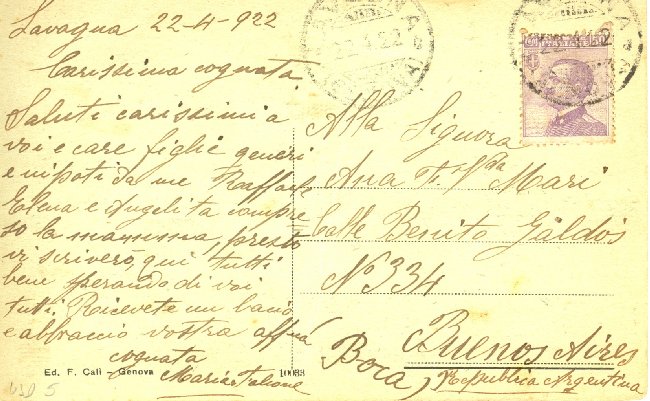 Lavagna 22-4-922
Carissima cognata
Saluti carissimi a
voi e care figlie generi
e nipoti da me Raffaele
Elena e Angelita compre
so la mamma, presto
vi scrivero, qui tutti
bene sperando di voi
tutti. Ricevete un bacio
e abbraccio vostra affma
cognata
Maria
Alla Signora
Ana F. Vda Mari
Calle Benito Gäldós
No 334
Buenos Aires
Boca, Republica Argentina
Ed. F. Calì - Genova
USD 5